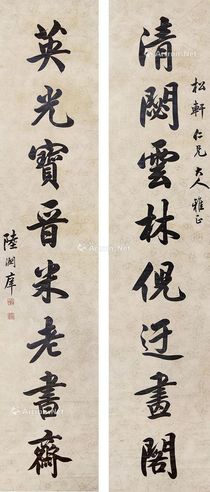 松軒仁兄大人雅正
清閟雲林倪迂畫閣
英光寶晉米老書齋
陸潤庠